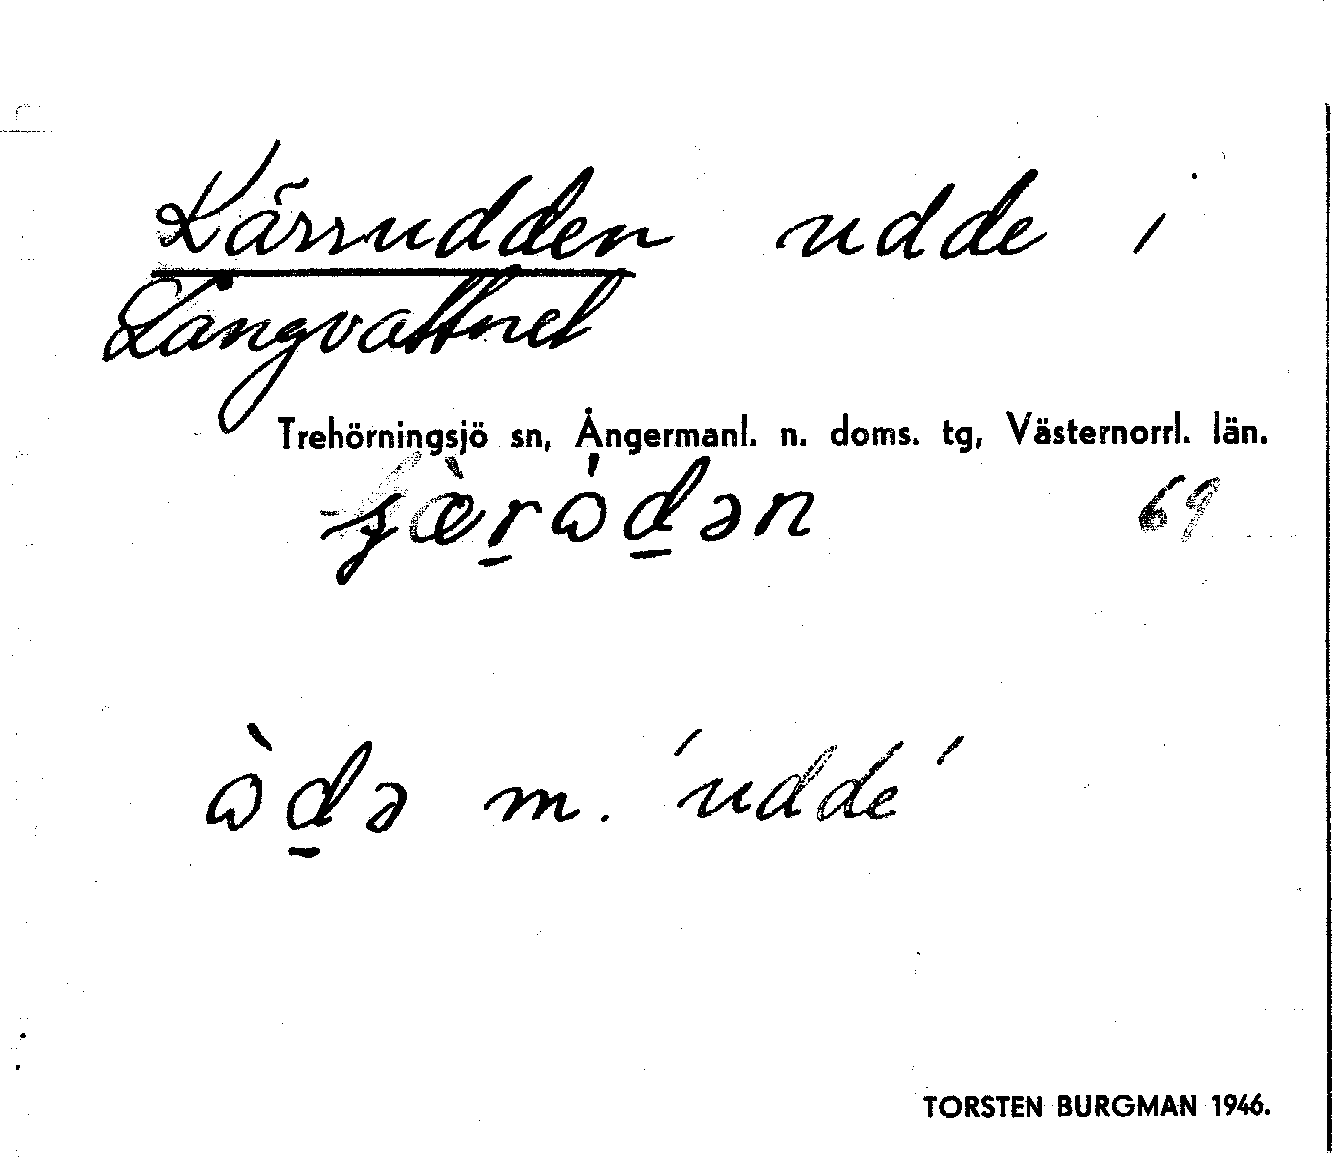 Kärrudden udde i
Långvattnet
Trehörningsjö sn, Ångermanl. n. doms. tg, Västernorrl. län.
ʂæ̀r̲ώd̲ən 69
ὼd̲ə m. 'udde'
TORSTEN BURGMAN 1946.